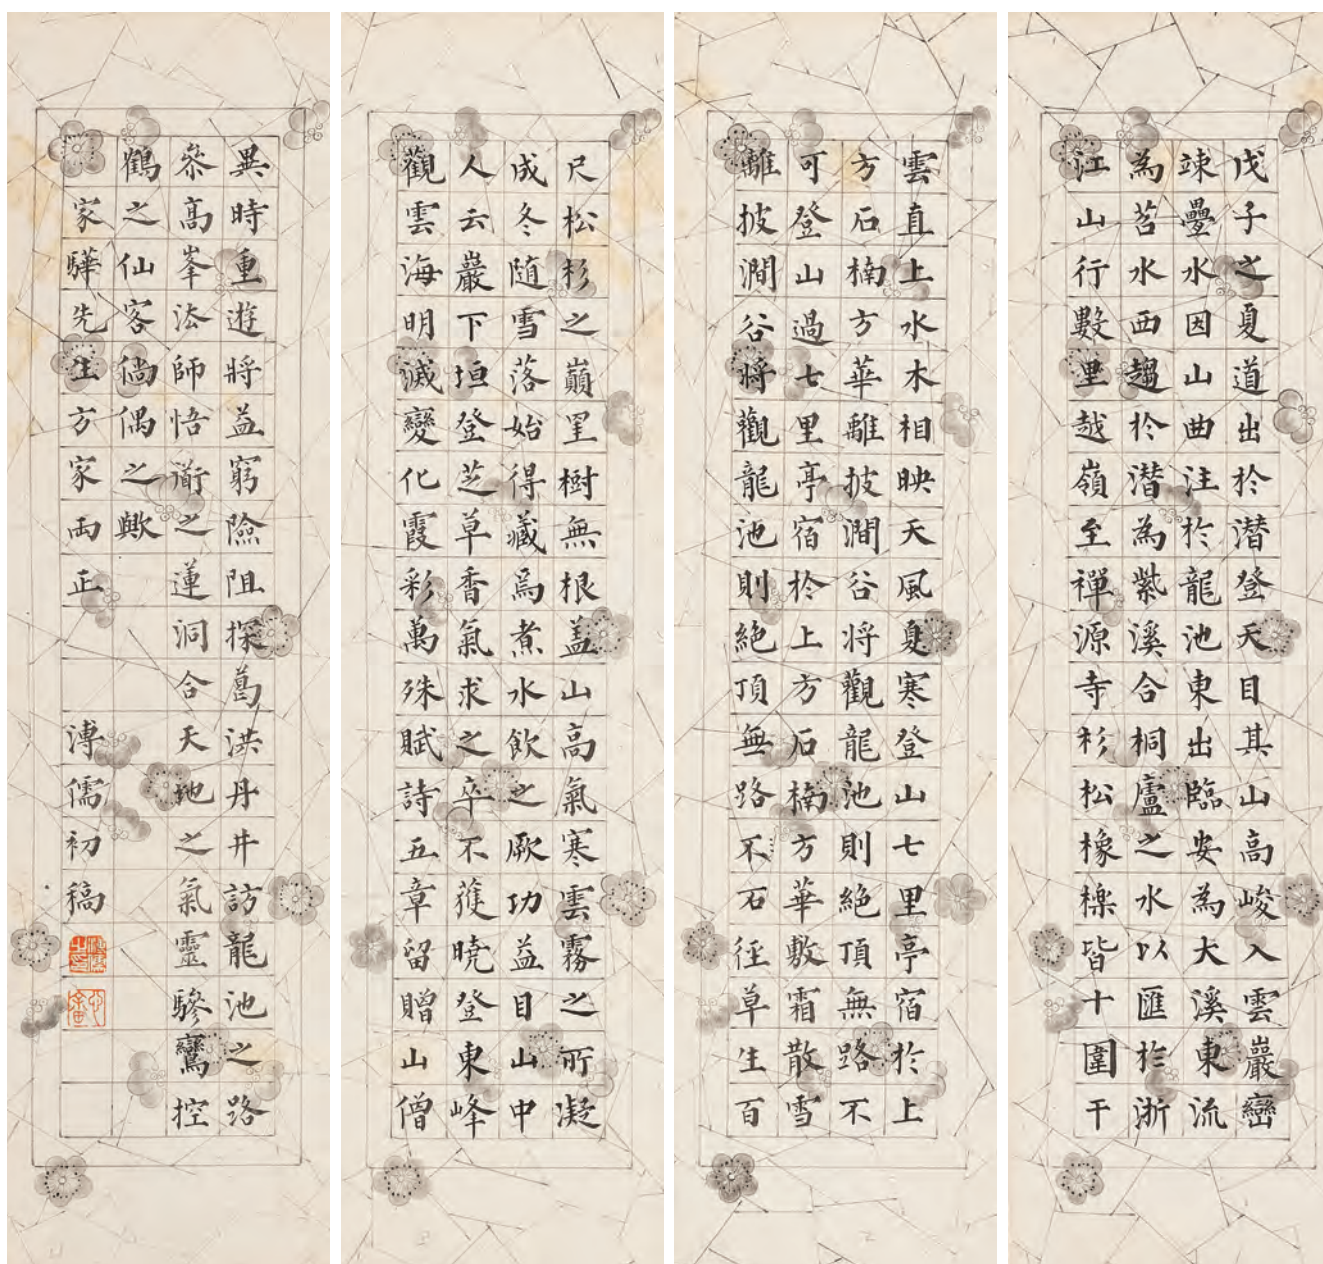 戊子之夏道出於潛登天目其山高峻入雲巖巒
竦疊水因山曲注於龍池東出臨安為大溪東流
為苕水西趨於潛為紫溪合桐廬之水以匯於浙
江山行數里越嶺至禪源寺杉松橡櫟皆十圍干
雲直上水木相映天風夏寒登山七里亭宿於上
方石楠方華離披澗谷將觀龍池則絕頂無路不
可登山過七里亭宿於上方石楠方華敷霜散雪
離披澗谷將觀龍池則絕頂無路不石徑草生百
尺松杉之巔星樹無根蓋山高氣寒雲霧之所凝
成冬隨雪落始得藏焉煮水飲之厥功益目山中
人云巖下垣登芝草香氣求之卒不獲曉登東峰
觀雲海明滅變化霞彩萬殊賦詩五章留贈山僧
異時重遊將益窮險阻探葛洪丹井訪龍池之路
叅高峯法師悟衜之蓮洞合天地之氣靈驂鸞控
鶴之仙客倘偶之歟
家驊先生方家兩正
溥儒初稿